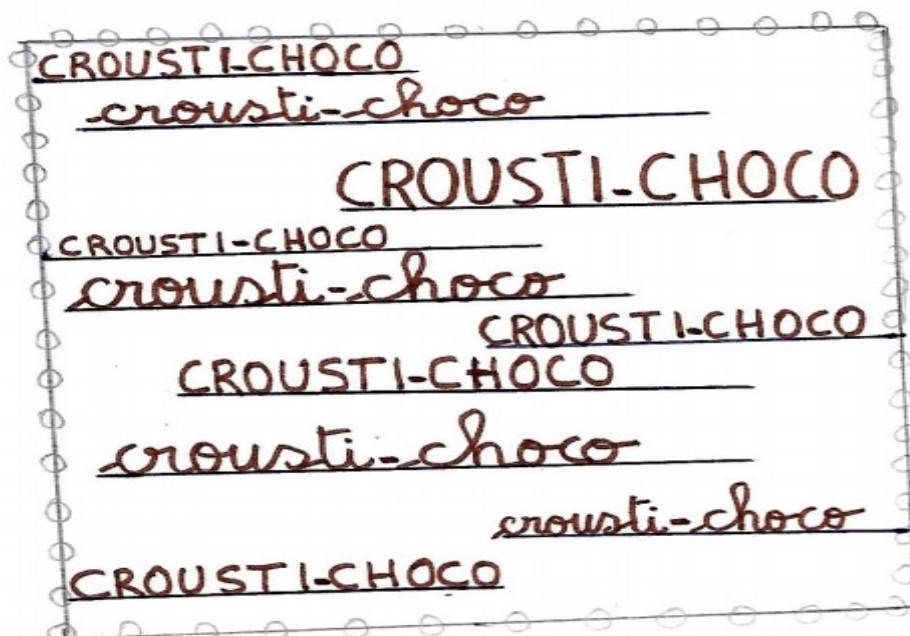 CROUSTI-CHOCO
crousti-choco
CROUSTI-CHOCO
CROUSTI-CHOCO
crousti-choco
CROUSTI-CHOCO
CROUSTI-CHOCO
crousti-choco
crousti-choco
CROUSTI-CHOCO